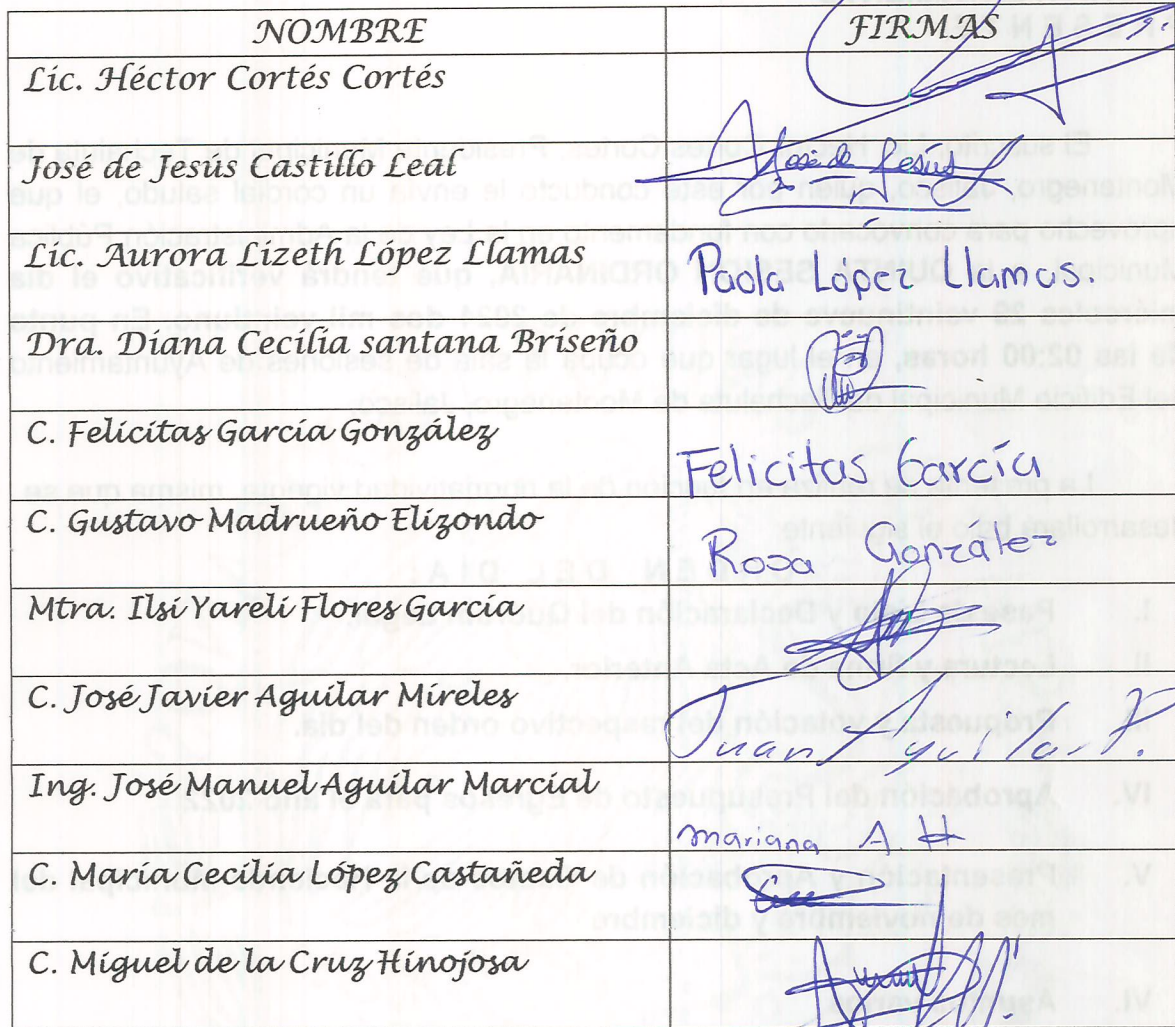 NOMBRE FIRMAS
Lic. Héctor Cortés Cortés
José de Jesús Castillo Leal José de Jesús
Lic. Aurora Lizeth López Llamas Paola López Llamas.
Dra. Diana Cecilia santana Briseño
C. Felicitas García González Felicitas García
C. Gustavo Madrueño Elizondo Rosa González
Mtra. Ilsi Yareli Flores García
C. José Javier Aguilar Mireles Juan Aguilar F.
Ing. José Manuel Aguilar Marcial mariana A H
C. María Cecilia López Castañeda
C. Miguel de la Cruz Hinojosa